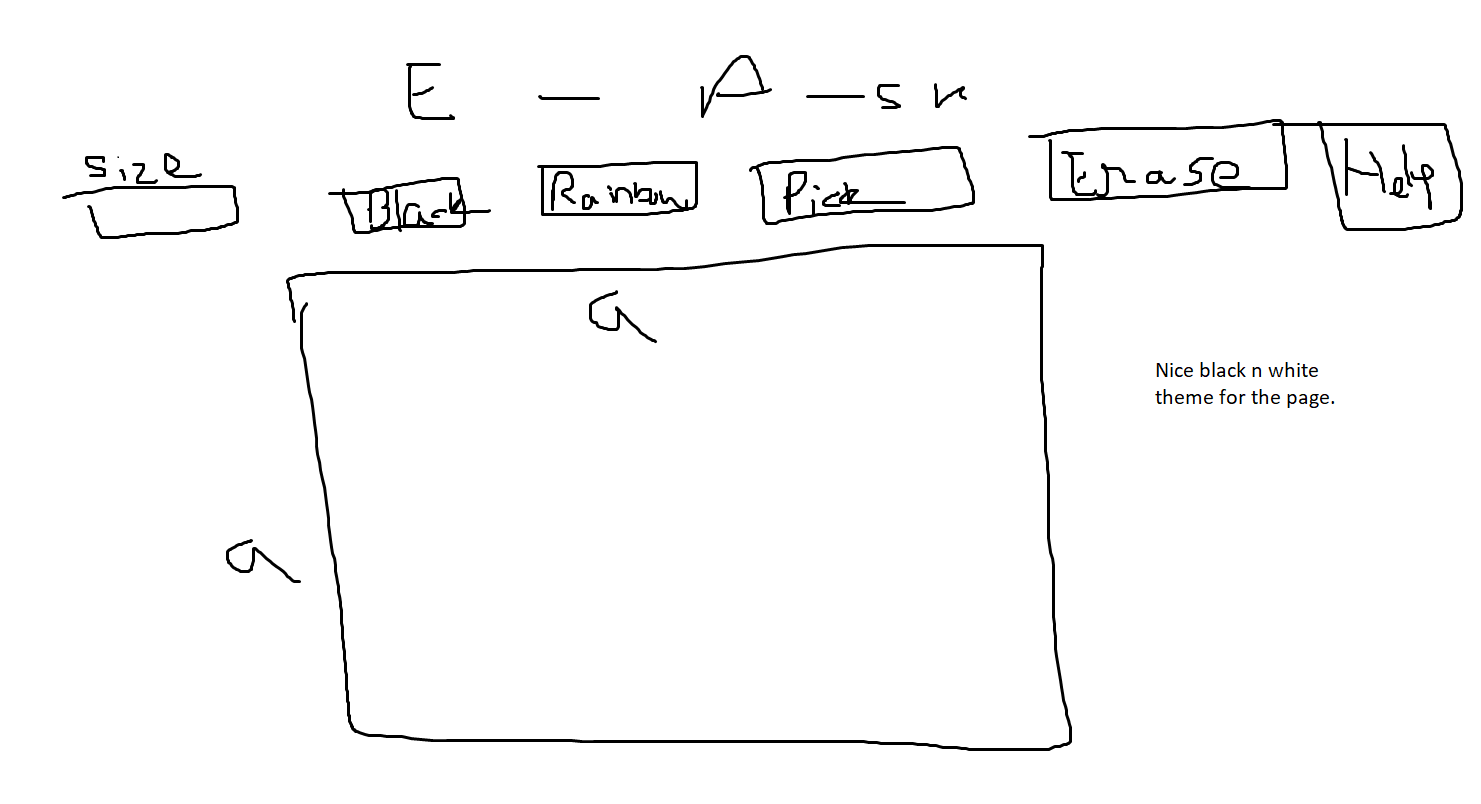 E — A — SK
Size
Black Rainbow Pick Erase Help
a
a
Nice black n white
theme for the page.